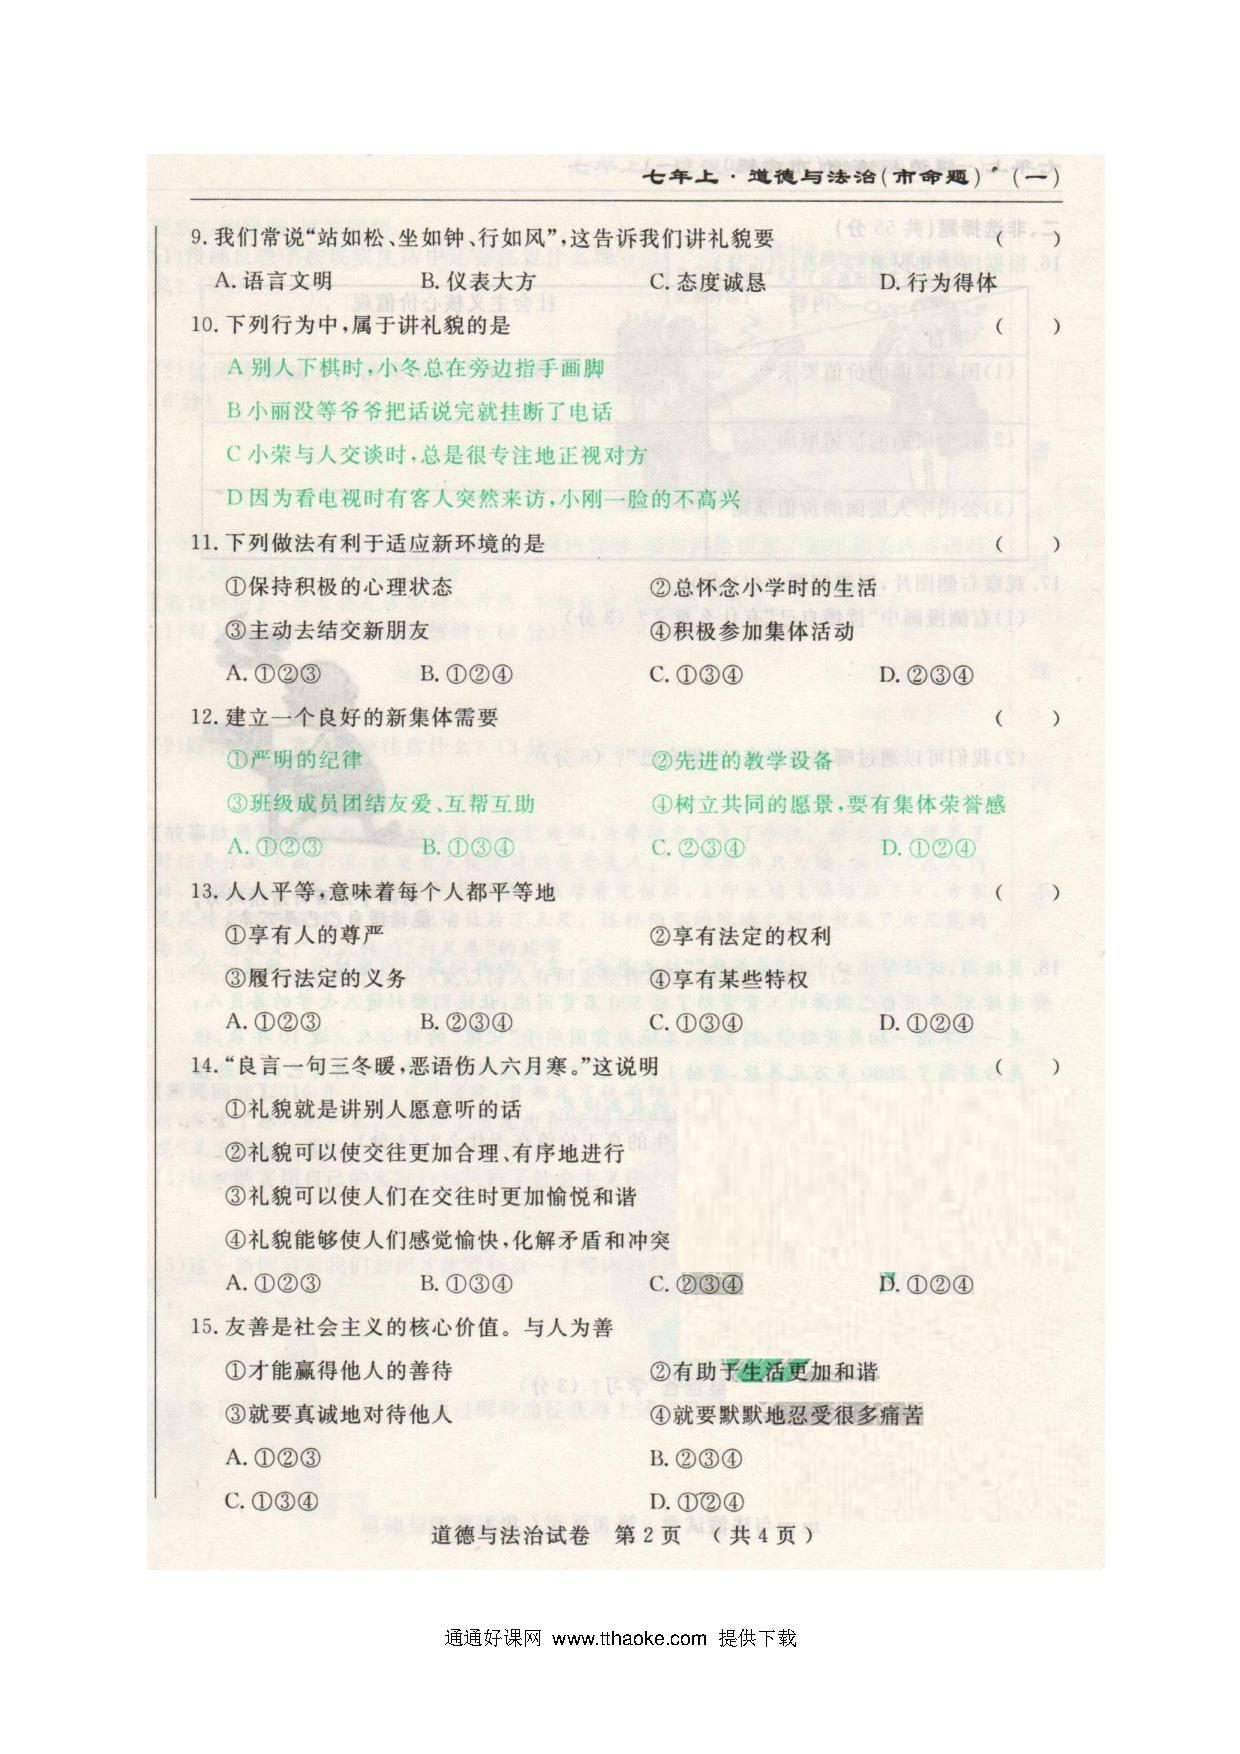 七年上·道德与法治(市命题)(一)
9.我们常说“站如松、坐如钟、行如风”,这告诉我们讲礼貌要 (  )
A.语言文明 B.仪表大方 C.态度诚恳 D.行为得体
10.下列行为中,属于讲礼貌的是 (  )
A 别人下棋时,小冬总在旁边指手画脚
B 小丽没等爷爷把话说完就挂断了电话
C 小荣与人交谈时,总是很专注地正视对方
D 因为看电视时有客人突然来访,小刚一脸的不高兴
11.下列做法有利于适应新环境的是 (  )
①保持积极的心理状态 ②总怀念小学时的生活
③主动去结交新朋友 ④积极参加集体活动
A.①②③ B.①②④ C.①③④ D.②③④
12.建立一个良好的新集体需要 (  )
①严明的纪律 ②先进的教学设备
③班级成员团结友爱、互帮互助 ④树立共同的愿景,要有集体荣誉感
A.①②③ B.①③④ C.②③④ D.①②④
13.人人平等,意味着每个人都平等地 (  )
①享有人的尊严 ②享有法定的权利
③履行法定的义务 ④享有某些特权
A.①②③ B.②③④ C.①③④ D.①②④
14.“良言一句三冬暖,恶语伤人六月寒。”这说明 (  )
①礼貌就是讲别人愿意听的话
②礼貌可以使交往更加合理、有序地进行
③礼貌可以使人们在交往时更加愉悦和谐
④礼貌能够使人们感觉愉快,化解矛盾和冲突
A.①②③ B.①③④ C.②③④ D.①②④
15.友善是社会主义的核心价值。与人为善
①才能赢得他人的善待 ②有助于生活更加和谐
③就要真诚地对待他人 ④就要默默地忍受很多痛苦
A.①②③ B.②③④
C.①③④ D.①②④
道德与法治试卷 第2页 (共4页)
通通好课网 www.tthaoke.com 提供下载